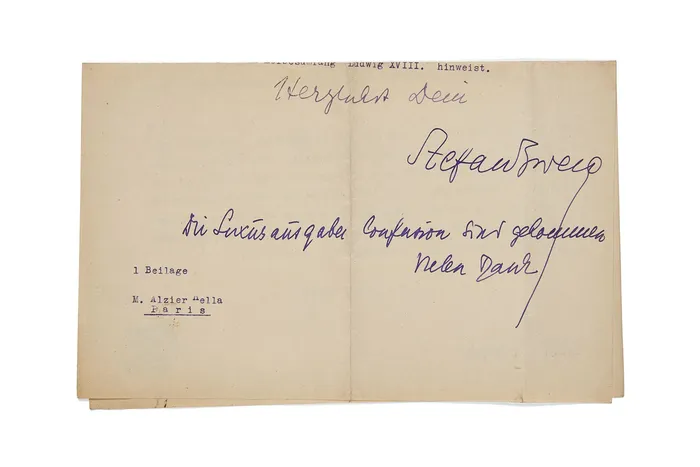 Ludwig XVIII. hinweist.
Herzlichst Dein
Stefan Zweig
Die Luxusausgaben Confusion sind gekommen
Vielen Dank
1 Beilage
M. Alzier Hella
Paris